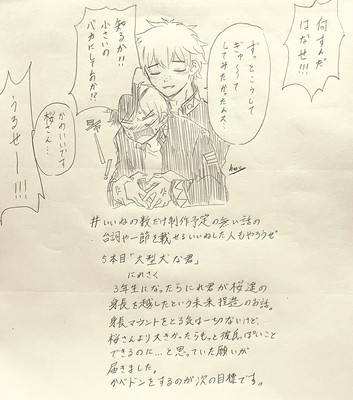 何すんだ
はなせ!!!
ずっとこうして
ぎゅーって
してみたかったんス
知るか!!
小さいの
バカにしてんのか!?
かわいいです
桜さん…
うるせー!!!
#いいねの数だけ制作予定の無い話の
台詞や一節を載せるいいねした人もやろうぜ
5本目「大型犬な君」
にれさく
3年生になったらにれ君が桜達の
身長を越したという未来捏造のお話。
身長マウントをとる気は一切ないけど、
桜さんより大きかったらもっと彼氏っぽいこと
できるのに…と思っていた願いが
届きました。
かべドンをするのが次の目標です。